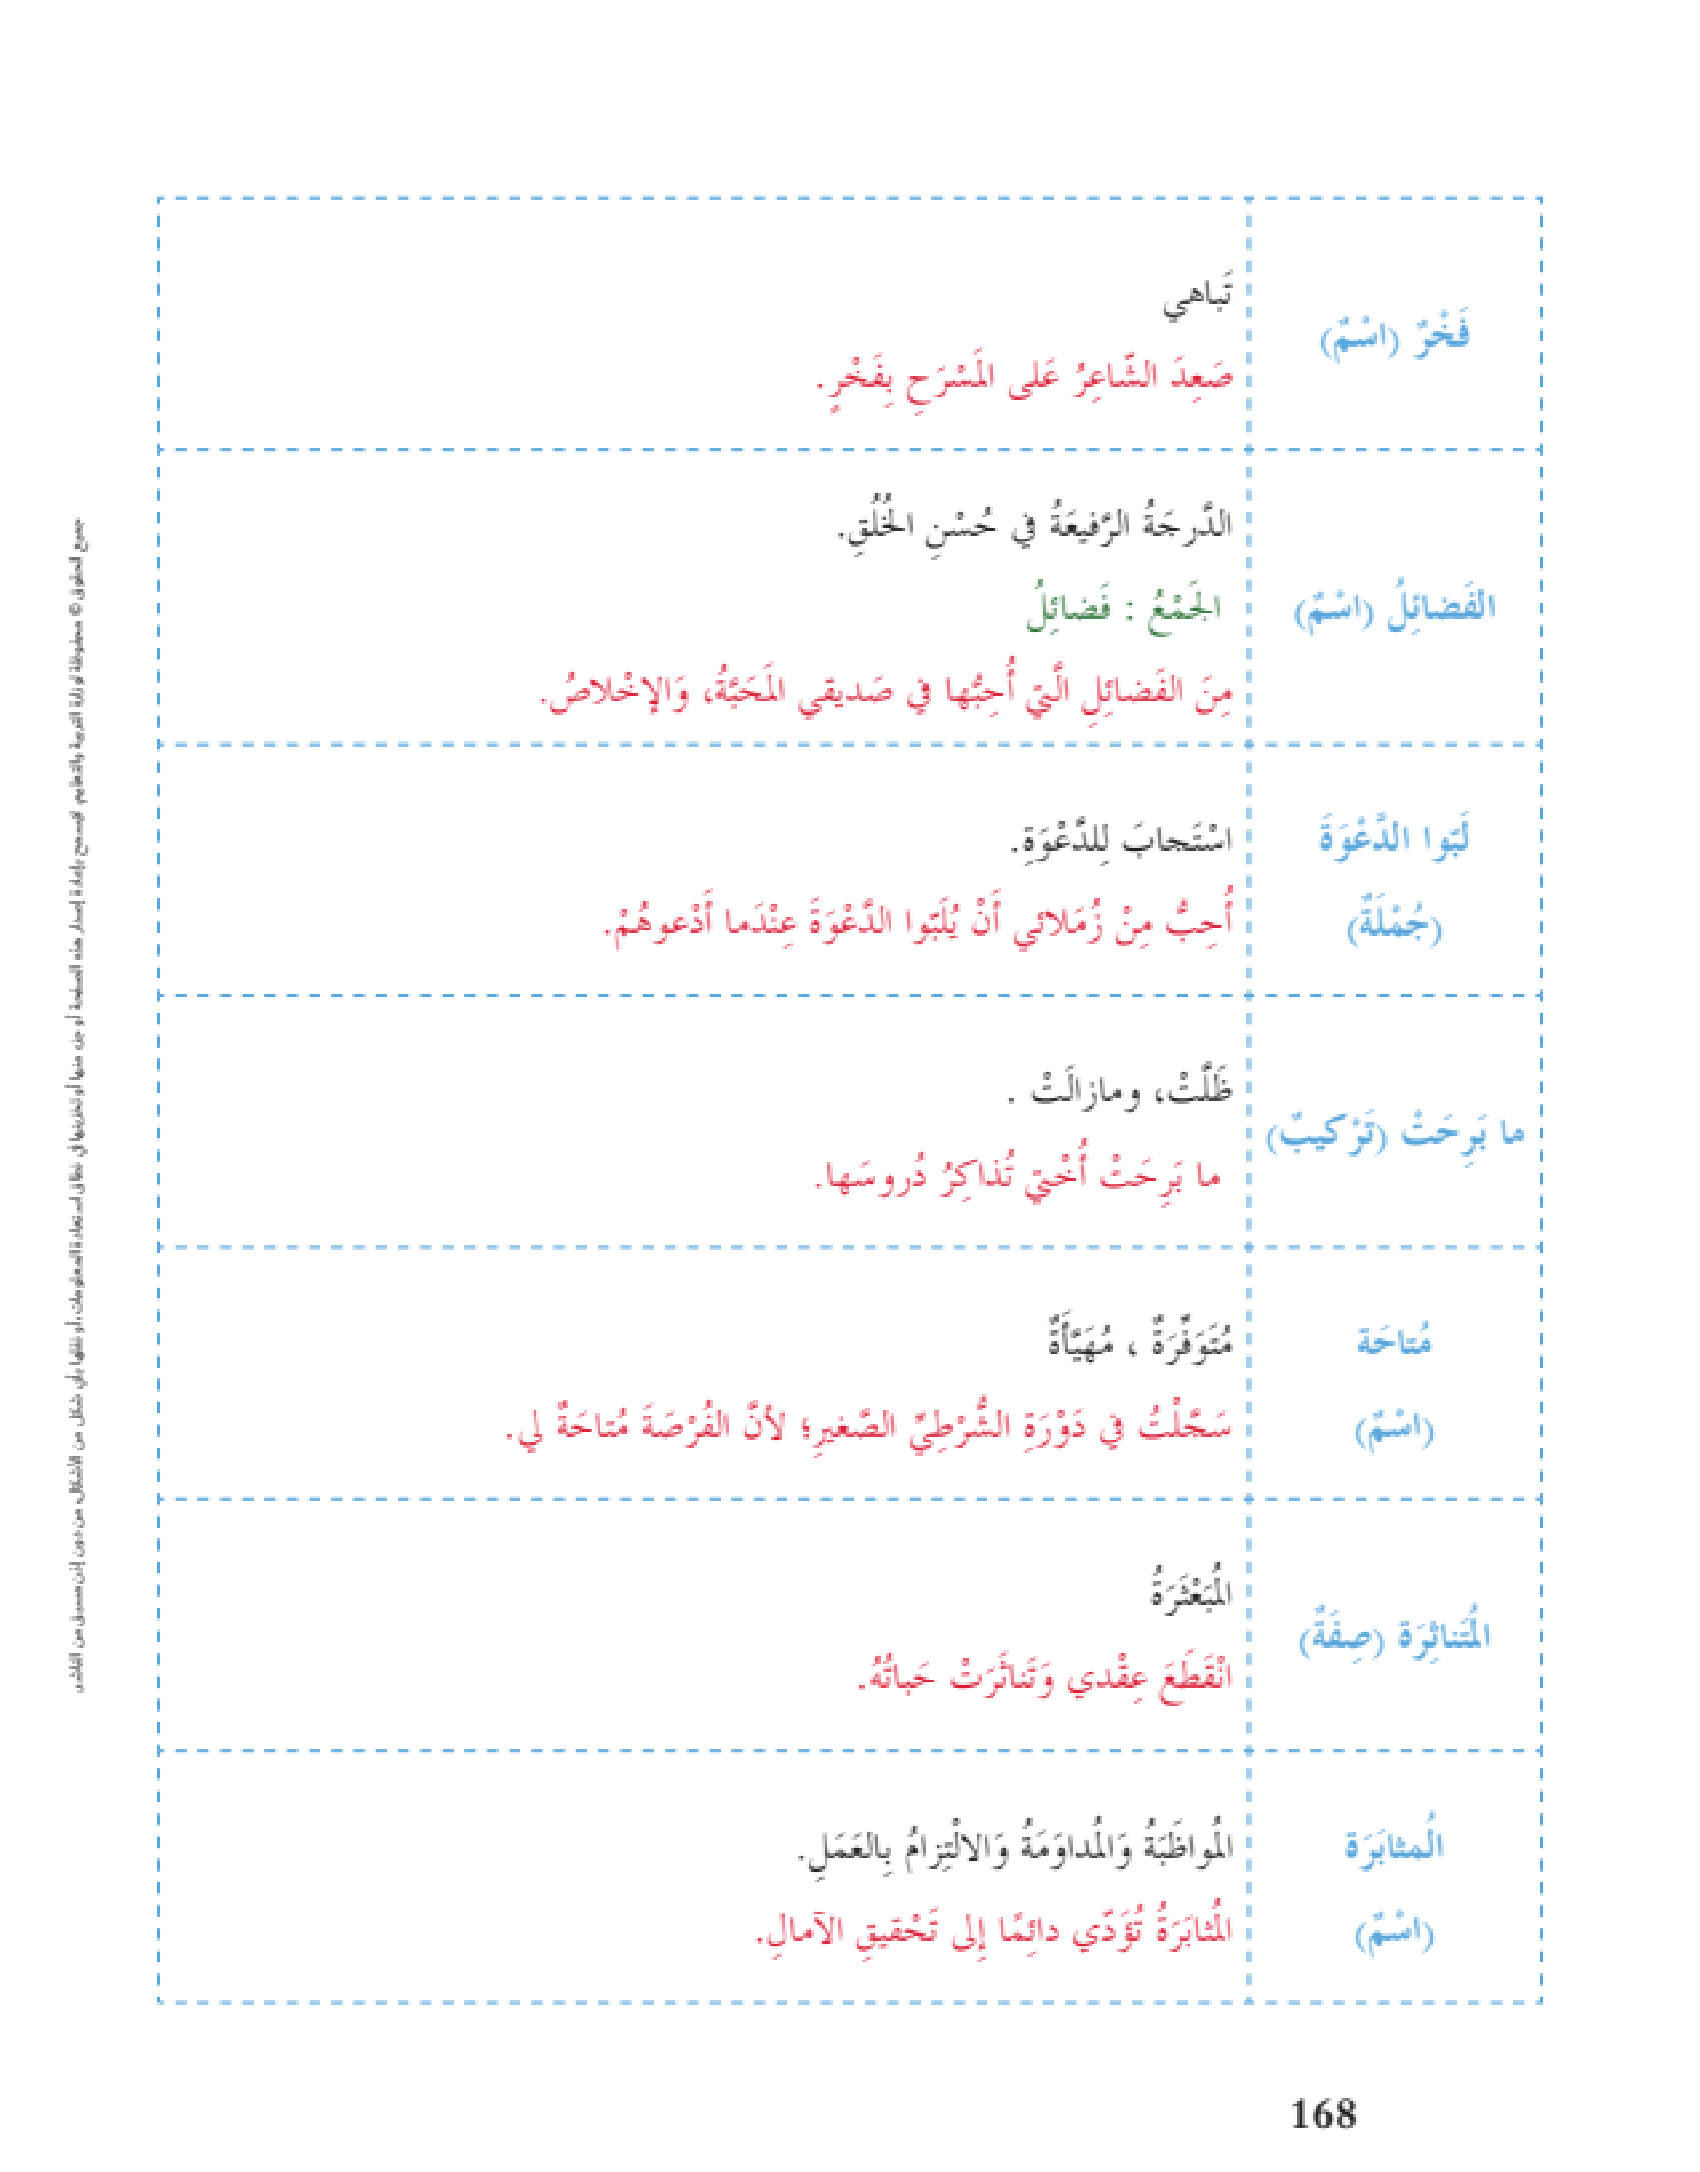 فَخْرٌ (اسْمٌ)
تَباهي
صَعِدَ الشّاعِرُ عَلى المَسْرَحِ بِفَخْرٍ.
الْفَضائِلُ (اسْمٌ)
الدَّرجَةُ الرَّفيعَةُ في حُسْنِ الخُلُقِ.
الجَمْعُ : فَضائِلُ
مِنَ الفَضائِلِ الَّتي أُحِبُّها في صَديقي المَحَبَّةُ، وَالإِخْلاصُ.
لَبّوا الدَّعْوَةَ
(جُمْلَةٌ)
اسْتَجابَ لِلدَّعْوَةِ.
أُحِبُّ مِنْ زُمَلائي أَنْ يُلَبّوا الدَّعْوَةَ عِنْدَما أَدْعوهُمْ.
ما بَرِحَتْ (تَرْكيبٌ)
ظَلَّتْ، ومازالَتْ .
ما بَرِحَتْ أُخْتي تُذاكِرُ دُروسَها.
مُتاحَة
(اسْمٌ)
مُتَوَفِّرَةٌ ، مُهَيَّأَةٌ
سَجَّلْتُ في دَوْرَةِ الشُّرْطِيِّ الصَّغيرِ؛ لأنَّ الفُرْصَةَ مُتاحَةٌ لي.
المُتَناثِرَة (صِفَةٌ)
المُبَعْثَرَةُ
انْقَطَعَ عِقْدي وَتَناثَرَتْ حَباتُهُ.
الْمثابَرَة
(اسْمٌ)
المُواظَبَةُ وَالمُداوَمَةُ وَالالْتِزامُ بِالعَمَلِ.
المُثابَرَةُ تُؤَدّي دائِمًا إِلى تَحْقيقِ الآمالِ.
جميع الحقوق © محفوظة لوزارة التربية والتعليم. لايسمح بإعادة إصدار هذه الصفحة أو جزء منها أو تخزينها في نطاق استعادة المعلومات، أو نقلها بأي شكل من الأشكال، من دون إذن مسبق من الناشر.
168